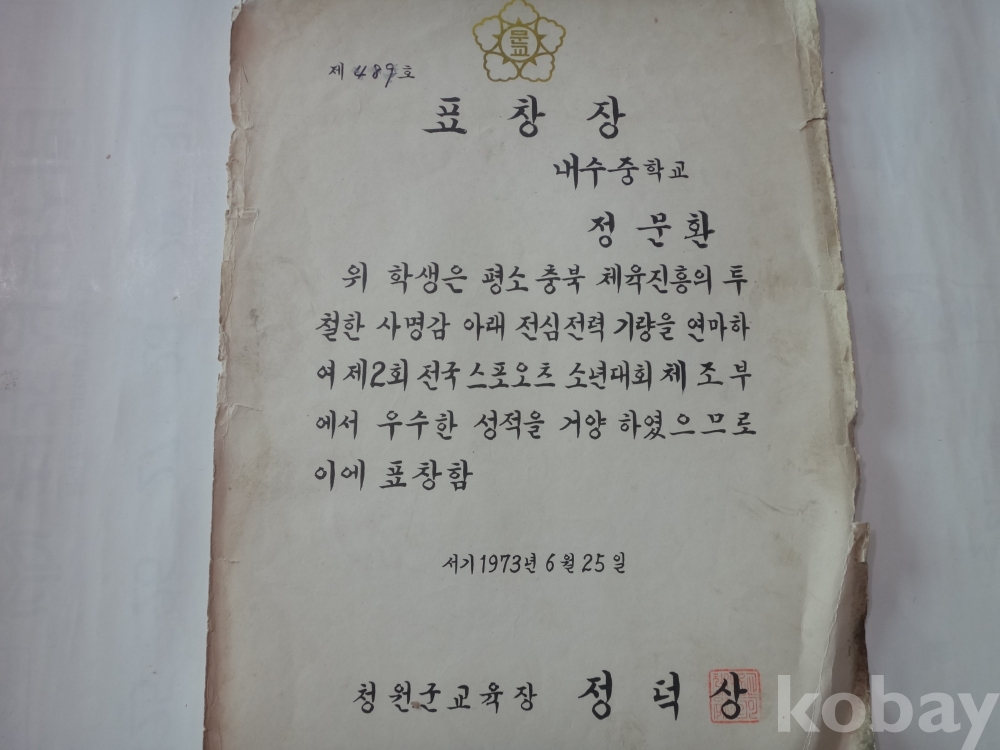 문교
제 489호
표창장
내수중학교
정문환
위 학생은 평소 충북 체육진흥의 투
철한 사명감 아래 전심전력 기량을 연마하
여 제2회 전국 스포오츠 소년대회 체조부
에서 우수한 성적을 거양 하였으므로
이에 표창함
서기 1973년 6월 25일
청원군교육장 정덕상
kobay